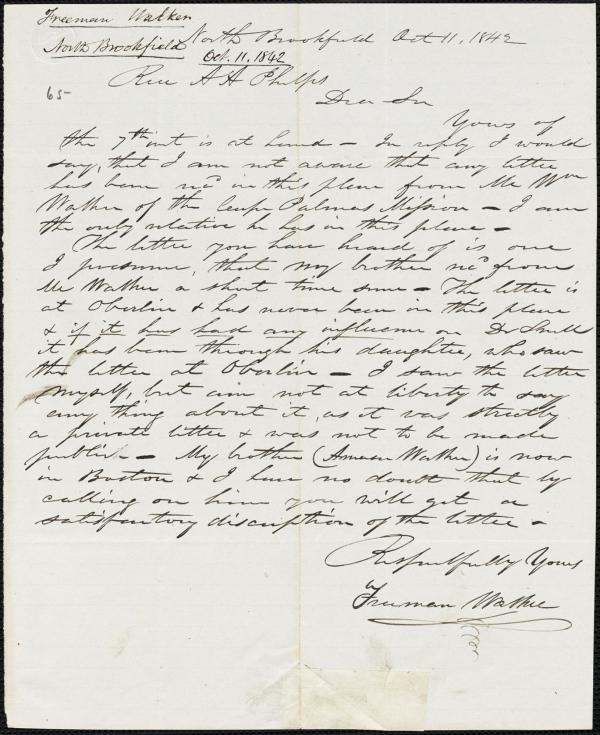 Freeman Walker
North Brookfield
Oct. 11, 1842
North Brookfield Oct 11, 1842
65-
Rev A A Phelps
Dear Sir
Yours of
the 7th inst is at hand - In reply I would
say, that I am not aware that any letter
has been recd in this place from Mr Wm
Walker of the Cape Palmas Mission - I am
the only relative he has in this place -
The letter you have heard of is one
I presume, that my brother recd from
Mr Walker a short time since - The letter is
at Oberlin & has never been in this place
& if it has had any influence on Dr Snell
it has been through his daughter, who saw
the letter at Oberlin - I saw the letter
myself, but am not at liberty to say
any thing about it, as it was strictly
a private letter & was not to be made
public - My brother (Amasa Walker) is now
in Boston & I have no doubt that by
calling on him you will get a
satisfactory discription of the letter -
Respectfully Yours
Freeman Walker